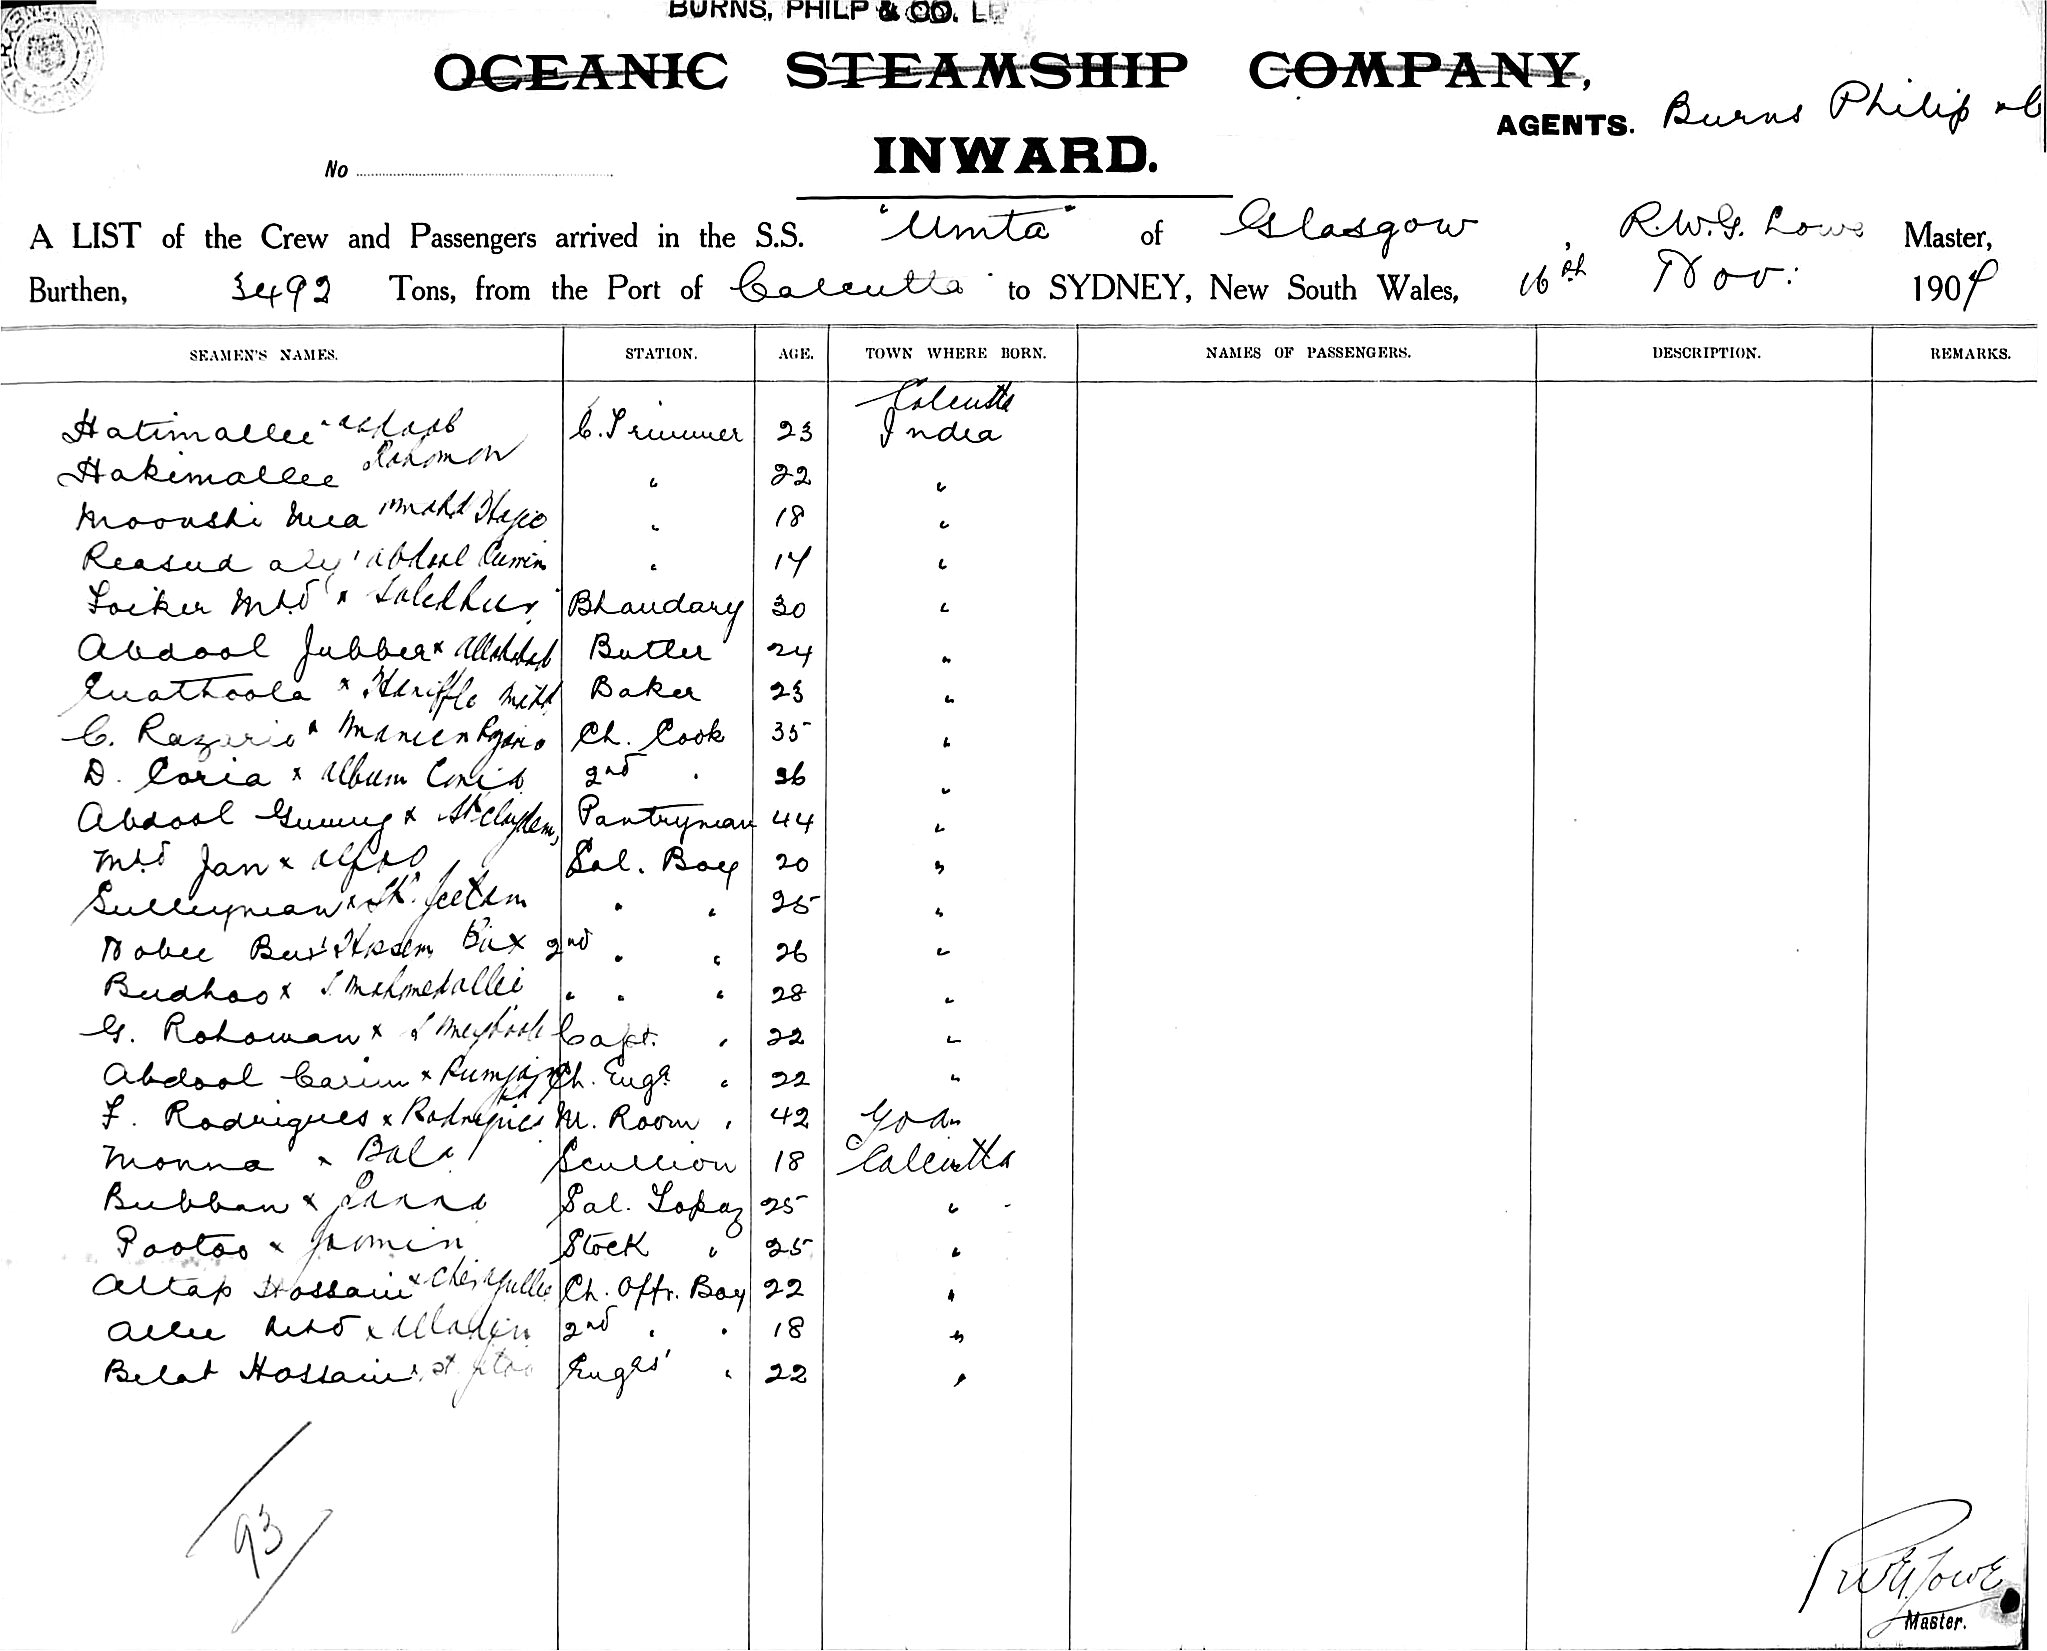 BURNS, PHILP & CO. L
OCEANIC STEAMSHIP COMPANY,
AGENTS. Burns Philip & C
INWARD.
No
A LIST of the Crew and Passengers arrived in the S.S. "Umta" of Glasgow, R.W.G. Lowe Master,
Burthen, 3492 Tons, from the Port of Calcutta to SYDNEY, New South Wales, 16th Nov: 1904
SEAMEN'S NAMES. STATION. AGE. TOWN WHERE BORN. NAMES OF PASSENGERS. DESCRIPTION. REMARKS.
Calcutta
Hatimallee C. Trimmer 23 India
Hakimallee Rohomon " 22 "
Moonshi Mea " 18 "
Abdool " 14 "
Mhd Bhandary 30 "
Abdool Jubber x Butler 24 "
x Baker 23 "
C. Razario x Ch. Cook 35 "
D. Coria x 2nd " 36 "
Abdool x Pantryman 44 "
Mhd Jan x Sal. Boy 20 "
Sulleyman x Sk. " " 25 "
Nobee Bux 2nd " " 26 "
Budhoo x " " " 28 "
G. Rohoman x Capt. " 22 "
Abdool Carim x Ch. Engr. " 22 "
F. Rodrigues x Rodrigues M. Room " 42 Goa
Monna x Bala Scullion 18 Calcutta
Bubban x Sal. Topaz 25 "
Pootoo x Jhomin Stock " 25 "
Altap Hossain x Ch. Offr. Boy 22 "
Allee Mhd x 2nd " " 18 "
Belat Hossain x Engrs' " 22 "
93
RWG Lowe
Master.